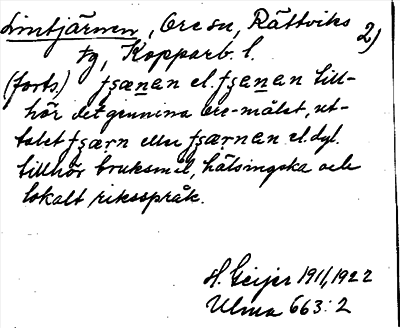 Limtjärnen, Ore sn, Rättviks 2)
tg, Kopparb. l.
(forts.) fʒænen el. fʒenen till-
hör det genuina Ore-målet, ut-
talet fʒærn eller fʒærnen el. dyl.
tillhör bruksmål, hälsingska och
lokalt riksspråk.
H. Geijer 1911, 1922
Ulma 663:2